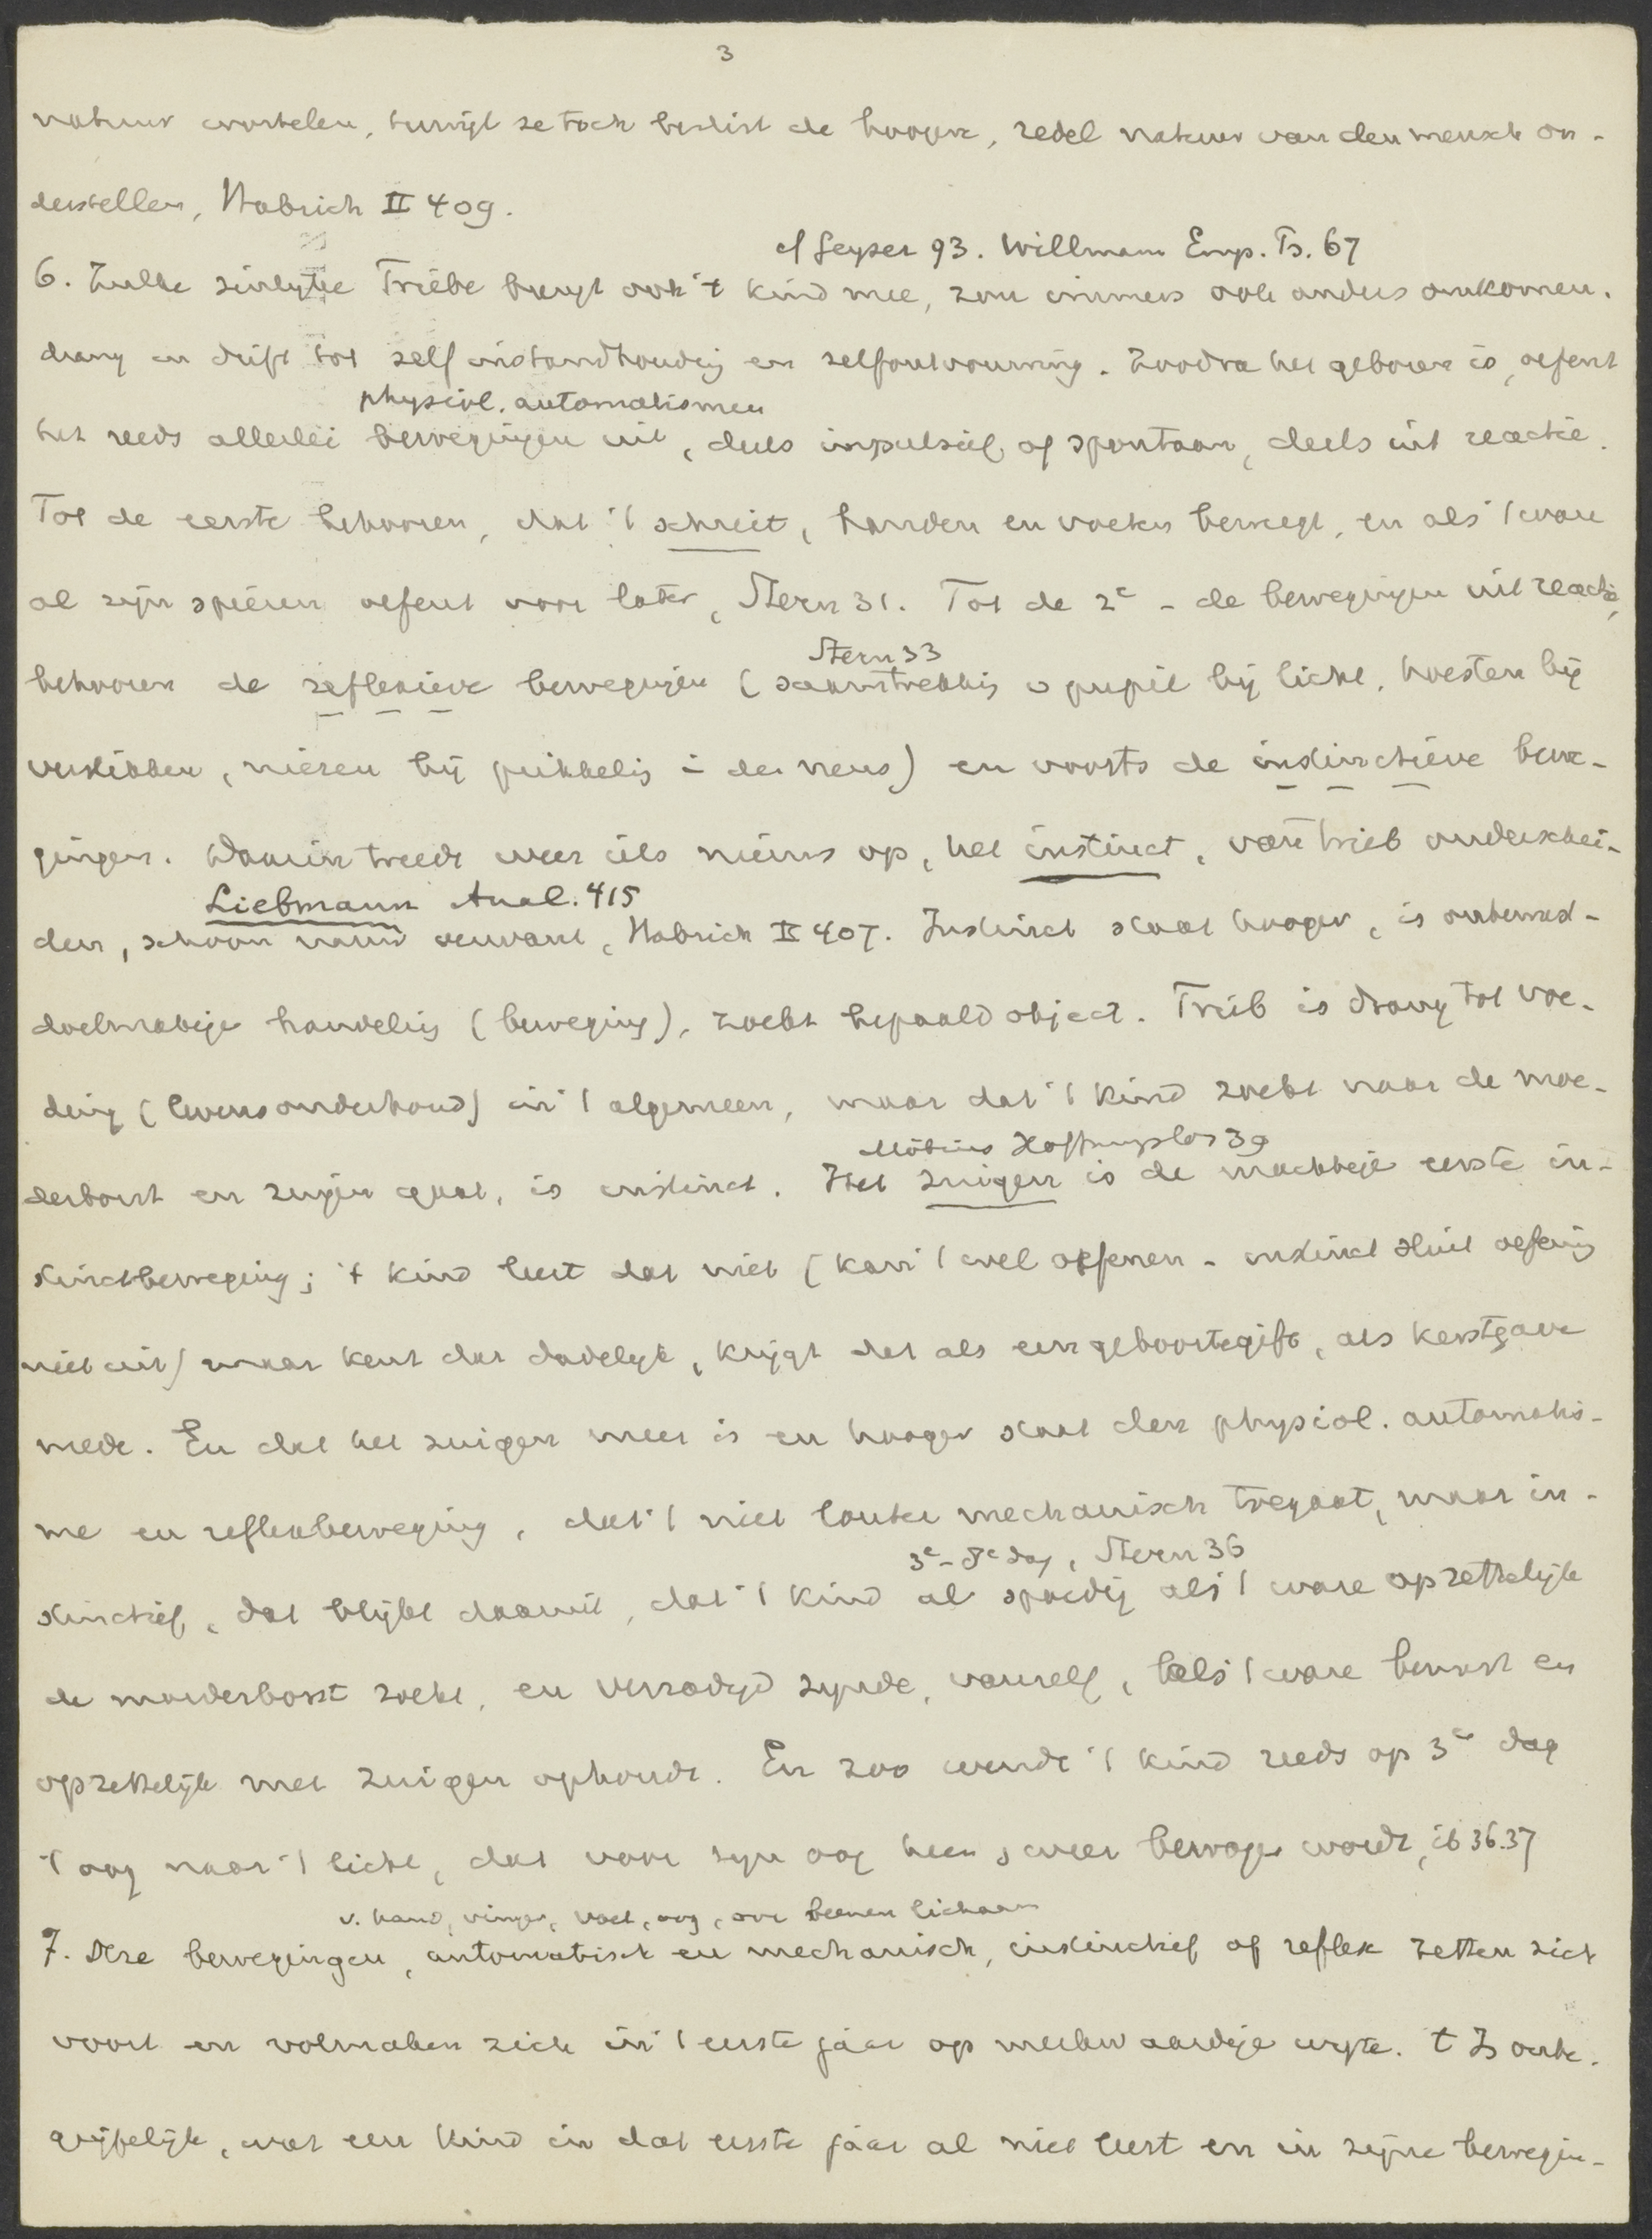 3
natuur wortelen, terwijl ze toch beslist de hoogere, redel natuur van den mensch on-
derstellen, Habrich II 409.
cf Geyser 93. Willmann Emp. Ps. 67
6. Zulke zinlyke Triebe brengt ook 't kind mee, zou immers ook anders omkomen.
drang en drift tot zelfinstandhoudig en zelfontvouwing. Zoodra het geboren is, oefent
physiol. automatismen
het reeds allerlei bewegingen uit, deels impulsief of spontaan, deels uit reactie.
Tot de eerste behooren, dat 't schreit, handen en voeten beweegt, en als 't ware
al zijn spieren oefent voor later, Stern 31. Tot de 2e - de bewegingen uit reactie,
Stern 33
behooren de reflexieve bewegingen (saamtrekkig v pupil bij licht, hoesten bij
verslikken, niezen bij prikkelig i den neus) en voorts de instinctieve bewe-
gingen. Daarin treedt weer iets nieuws op, het instinct, van trieb onderschei-
Liebmann Anal. 415
den, schoon nauw verwant, Habrich II 407. Instinct staat hooger, is onbewust-
doelmatige handelig (beweging), zoekt bepaald object. Trieb is drang tot voe-
ding (levensonderhoud) in 't algemeen, maar dat 't kind zoekt naar de moe-
Möbius Hoffnungslos 39
derborst en zuigen gaat, is instinct. Het zuigen is de machtige eerste in-
stinctbeweging; 't kind leert dat niet (kan 't wel oefenen - instinct sluit oefenig
niet uit) maar kent dat dadelyk, krijgt dat als een geboortegift, als kerstgave
mede. En dat het zuigen meer is en hooger staat dan physiol. automatis-
me en reflexbeweging, dat 't niet louter mechanisch toegaat, maar in-
3e - 8e dag, Stern 36
stinctief, dat blijkt daaruit, dat 't kind al spoedig als 't ware opzettelijk
de moederborst zoekt, en verzadigd zijnde, vanzelf, als 't ware bewust en
opzettelijk met zuigen ophoudt. En zoo wendt 't kind reeds op 3e dag
't oog naar 't licht, dat voor zijn oog heen en weer bewogen wordt, ib 36.37
v. hand, vinger, voet, oog, arm beenen lichaam
7. Deze bewegingen, automatisch en mechanisch, instinctief of reflex zetten zich
voort en volmaken zich in 't eerste jaar op merkwaardige wyze. 't Is onbe-
grijpelijk, wat een kind in dat eerste jaar al niet leert en in zijne bewegin-